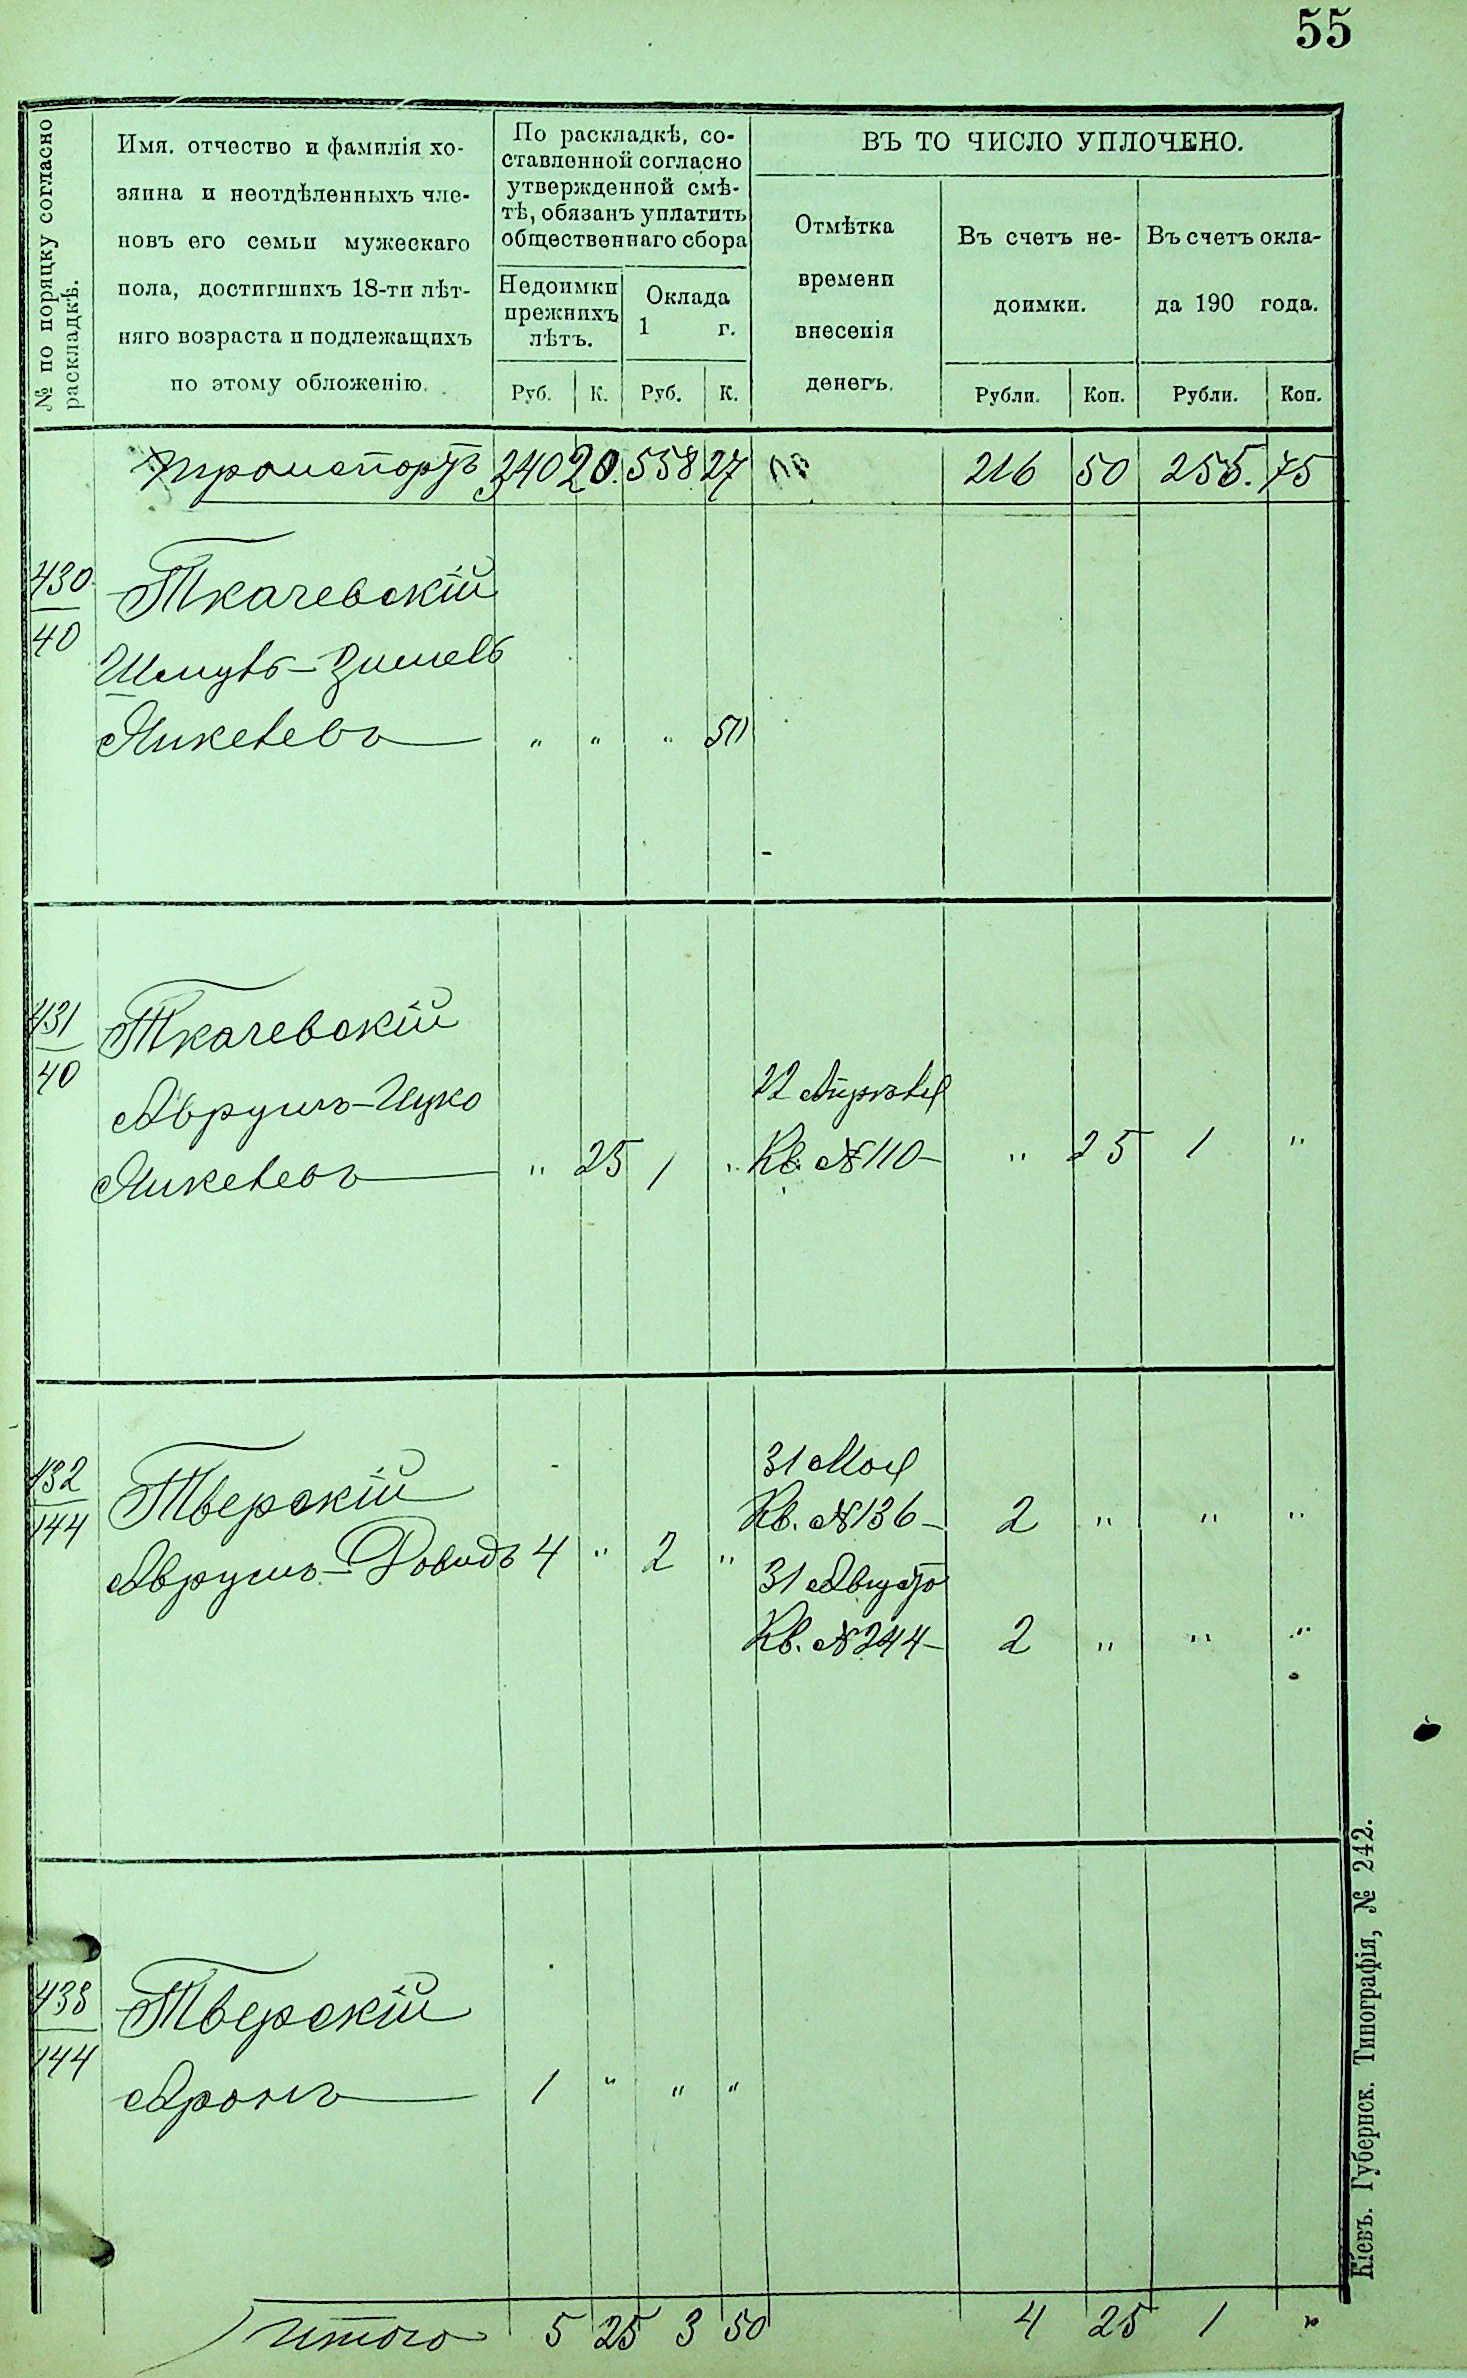 55
№ по порядку согласно
раскладкѣ.
Имя. отчество и фамилія хо-
зяина и неотдѣленныхъ чле-
новъ его семьи мужескаго
пола, достигшихъ 18-ти лѣт-
няго возраста и подлежащихъ
по этому обложенію.
По раскладкѣ, со-
ставленной согласно
утвержденной смѣ-
тѣ, обязанъ уплатить
общественнаго сбора
Недоимки
прежнихъ
лѣтъ.
Оклада
1 г.
Руб. К. Руб. К.
ВЪ ТО ЧИСЛО УПЛОЧЕНО.
Отмѣтка
времени
внесенія
денегъ.
Въ счетъ не-
доимки.
Въ счетъ окла-
да 190 года.
Рубли. Коп. Рубли. Коп.
Транспортъ 340 20. 558 27 216 50 255. 75
430
40
Ткачевскій
Шмуль-Зисель
Янкелевъ " " " 50
431
40
Ткачевскій
Аврумъ-Ицко
Янкелевъ " 25 1 "
22 Апрѣля
Кв. № 110 - " 25 1 "
432
144
Тверскій
Аврумъ-Довидъ 4 " 2 "
31 Мая
Кв. № 136 - 2 " " "
31 Августа
Кв. № 244 - 2 " " "
433
144
Тверскій
Аронъ 1 " " "
Итого 5 25 3 50 4 25 1 "
Кіевъ. Губернск. Типографія, № 242.